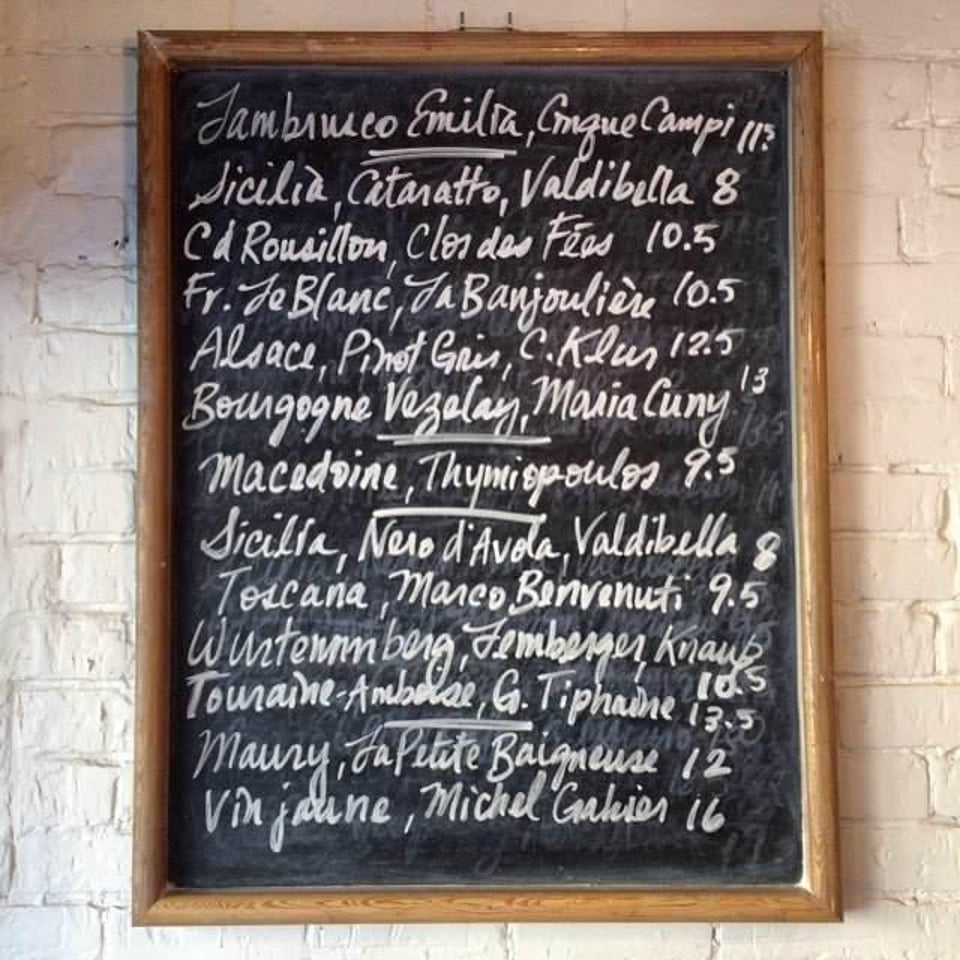 Lambrusco Emilia, Cinque Campi 11.5
Sicilia, Cataratto, Valdibella 8
Cd Rousillon, Clos des Fées 10.5
Fr. Le Blanc, La Banjoulière 10.5
Alsace, Pinot Gris, C. Klur 12.5
Bourgogne Vezelay, Maria Cuny 13
Macedoine, Thymiopoulos 9.5
Sicilia, Nero d'Avola, Valdibella 8
Toscana, Marco Benvenuti 9.5
Wurtemmberg, Lemberger, Knaup 10.5
Touraine-Amboise, G. Tiphaine 13.5
Maury, La Petite Baigneuse 12
Vin jaune, Michel Gahier 16